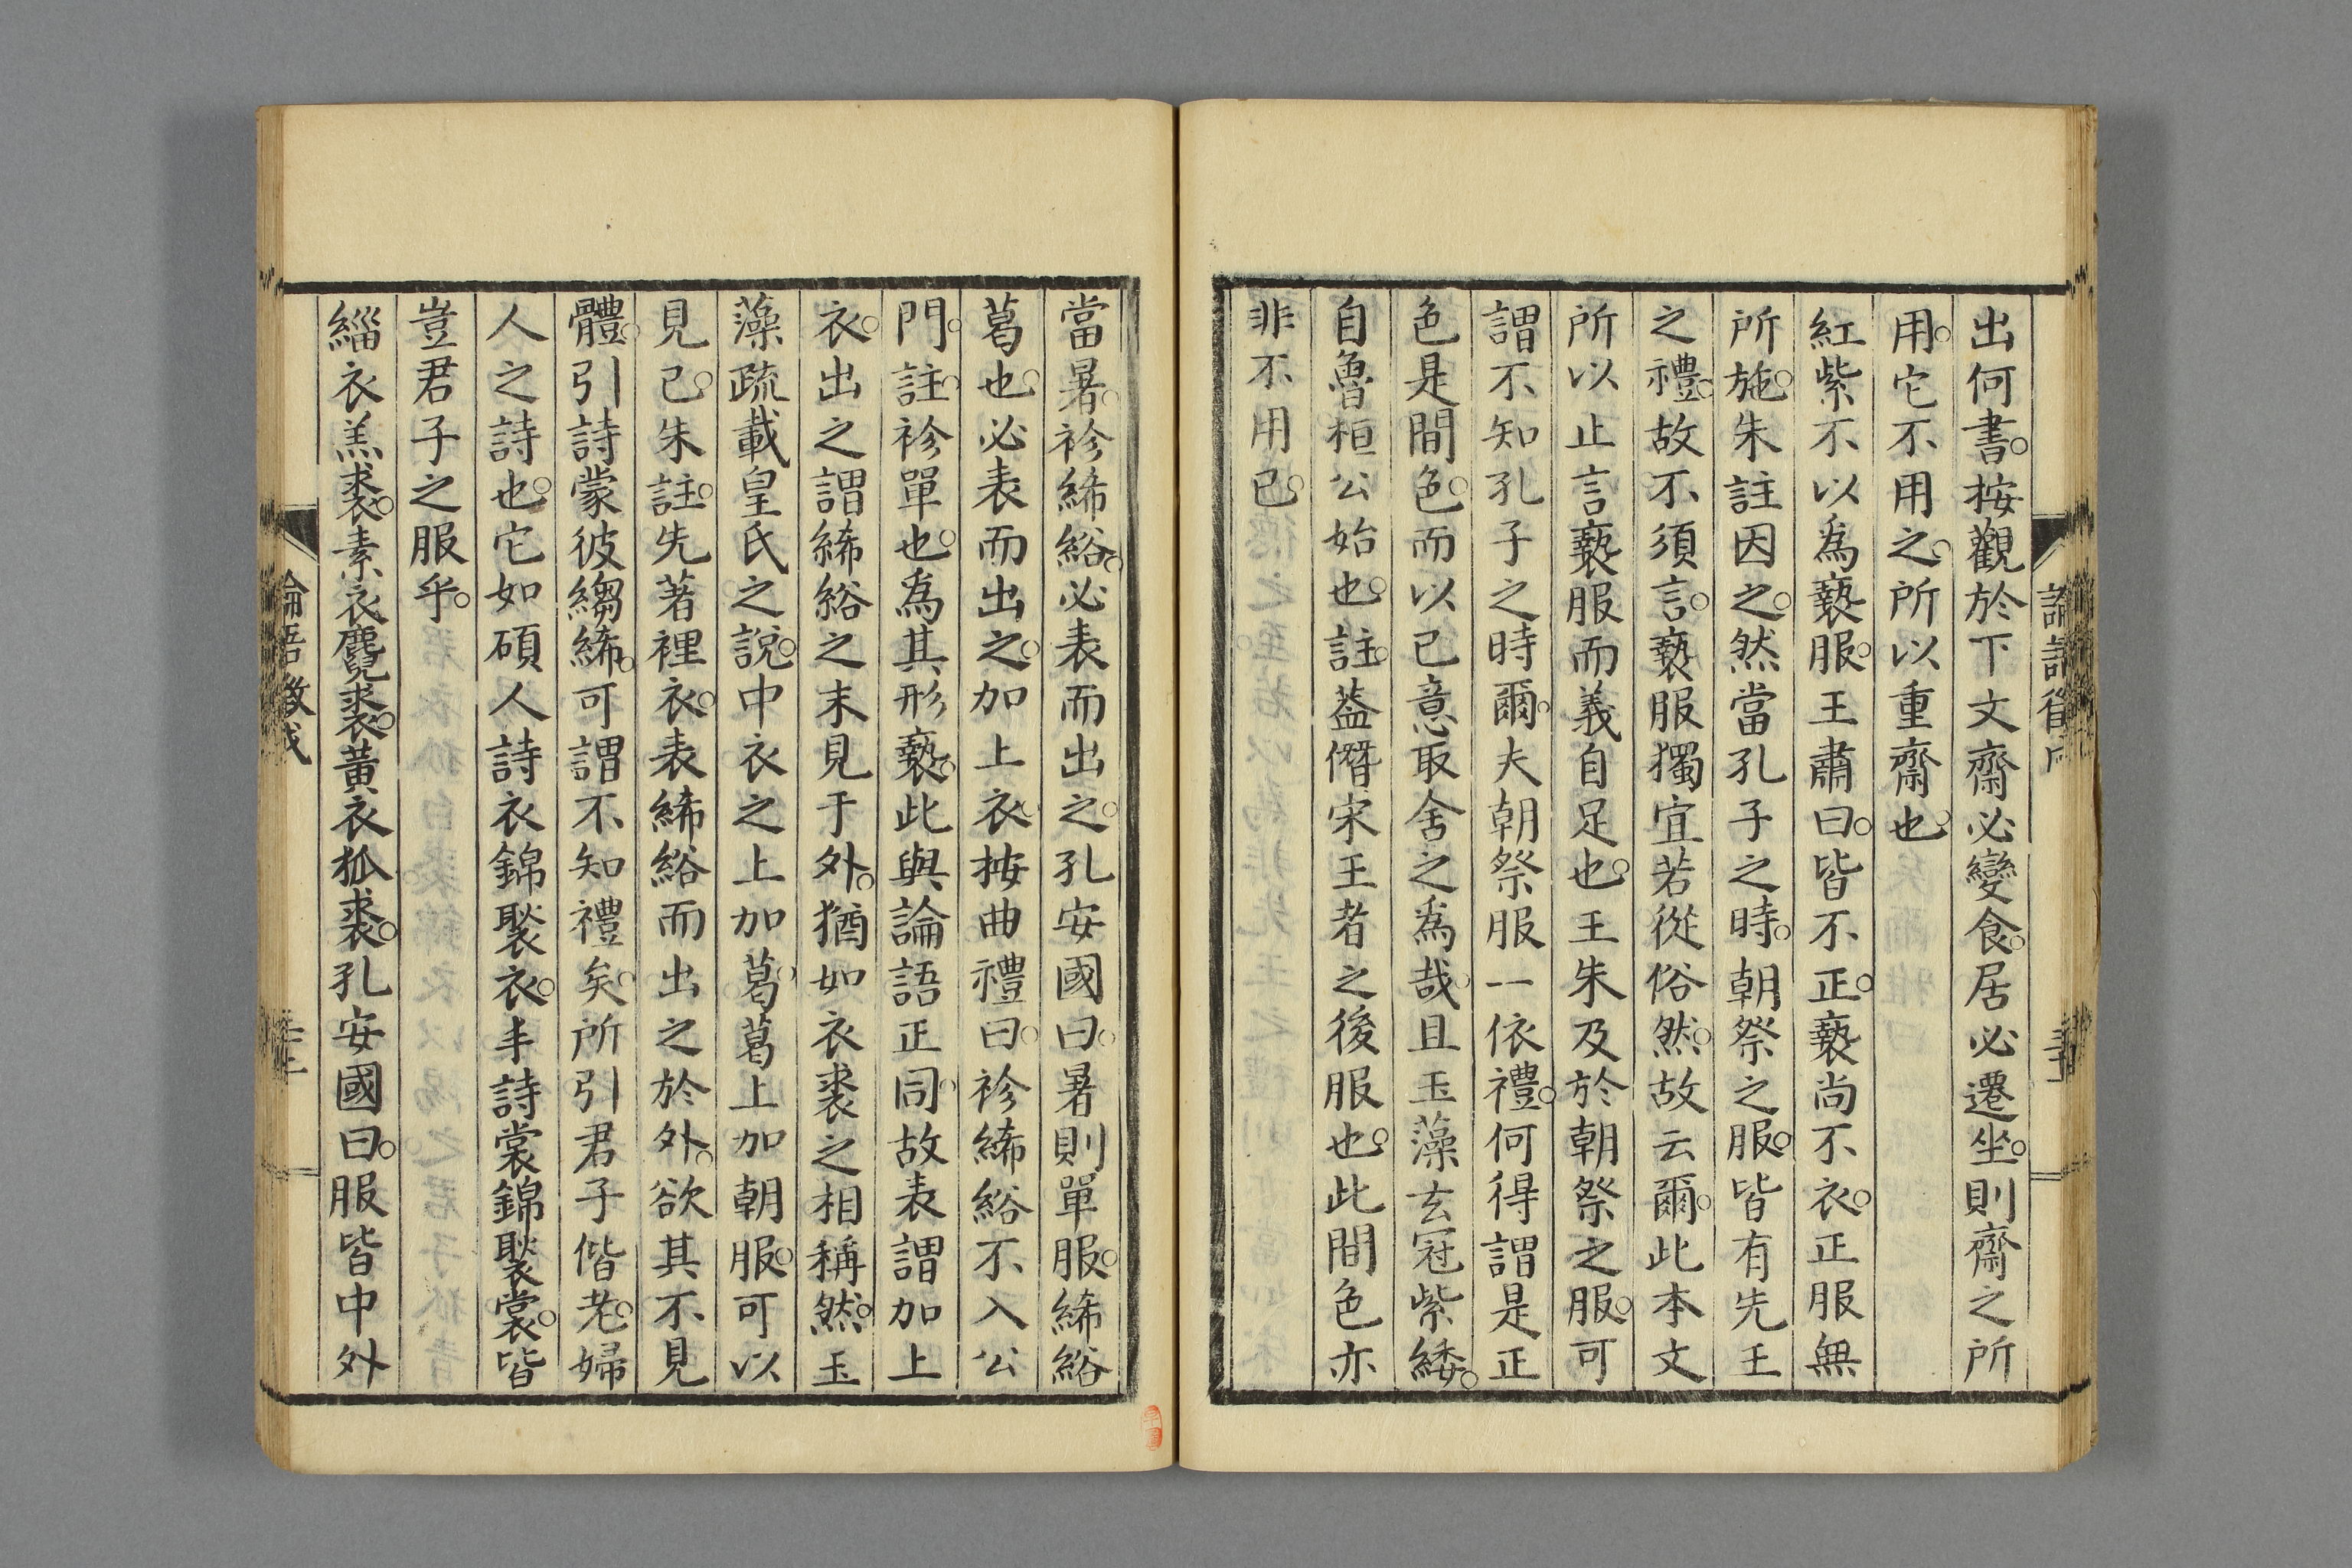 出何書。按觀於下文齋必變食。居必遷坐。則齋之所
用。它不用之。所以重齋也。
紅紫不以爲褻服。王肅曰。皆不正。褻尚不衣。正服無
所施。朱註因之。然當孔子之時。朝祭之服。皆有先王
之禮。故不須言。褻服獨宜若從俗然。故云爾。此本文
所以止言褻服而義自足也。王朱及於朝祭之服。可
謂不知孔子之時爾。夫朝祭服一依禮。何得謂是正
色是間色。而以己意取舍之爲哉。且玉藻玄冠紫緌。
自魯桓公始也。註。蓋僭宋王者之後服也。此間色亦
非不用已。
當暑。袗絺綌。必表而出之。孔安國曰。暑則單服。絺綌
葛也。必表而出之。加上衣。按曲禮曰。袗絺綌不入公
門。註。袗單也。爲其形褻。此與論語正同。故表謂加上
衣。出之謂絺綌之末見于外。猶如衣裘之相稱然。玉
藻疏載皇氏之說。中衣之上加葛。葛上加朝服。可以
見已。朱註。先著裡衣。表絺綌而出之於外。欲其不見
體。引詩蒙彼縐絺。可謂不知禮矣。所引君子偕老。婦
人之詩也。它如碩人詩衣錦褧衣。丰詩裳錦褧裳。皆
豈君子之服乎。
緇衣羔裘。素衣麑裘。黃衣狐裘。孔安國曰。服皆中外